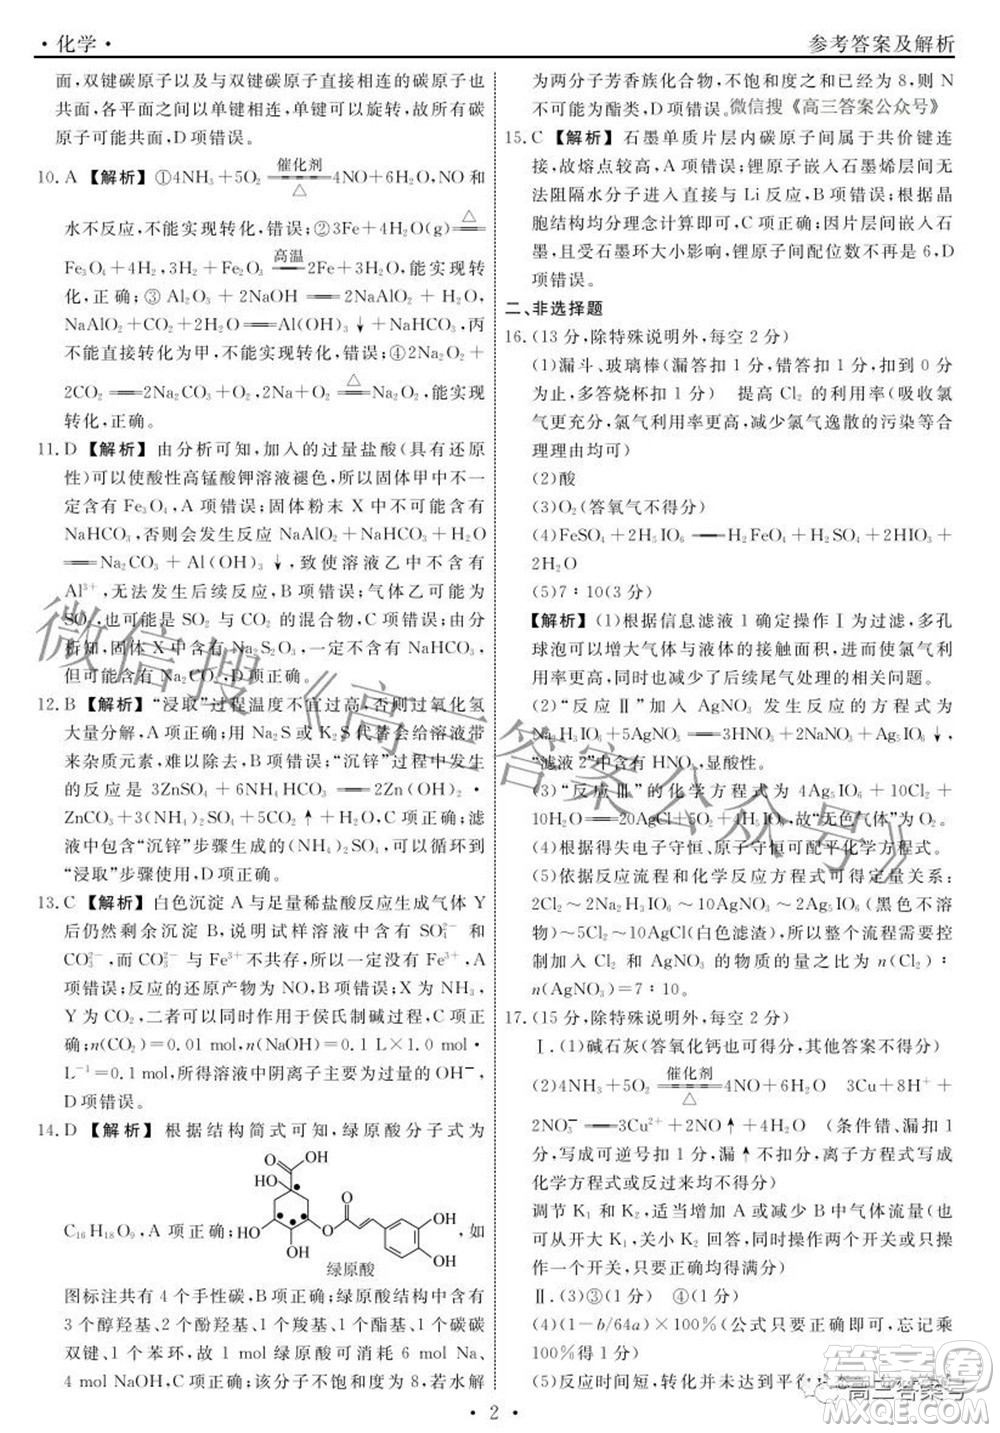 ·化学·
参考答案及解析
面,双键碳原子以及与双键碳原子直接相连的碳原子也
共面,各平面之间以单键相连,单键可以旋转,故所有碳
原子可能共面,D项错误。
10. A 【解析】①4NH₃+5O₂ 催化剂══△ 4NO+6H₂O,NO和
水不反应,不能实现转化,错误;②3Fe+4H₂O(g) △══
Fe₃O₄+4H₂,3H₂+Fe₂O₃ 高温══ 2Fe+3H₂O,能实现转
化,正确;③Al₂O₃+2NaOH══2NaAlO₂+H₂O,
NaAlO₂+CO₂+2H₂O══Al(OH)₃↓+NaHCO₃,丙
不能直接转化为甲,不能实现转化,错误;④2Na₂O₂+
2CO₂══2Na₂CO₃+O₂,2Na+O₂ △══ Na₂O₂,能实现
转化,正确。
11. D 【解析】由分析可知,加入的过量盐酸(具有还原
性)可以使酸性高锰酸钾溶液褪色,所以固体甲中不一
定含有Fe₃O₄,A项错误;固体粉末X中不可能含有
NaHCO₃,否则会发生反应NaAlO₂+NaHCO₃+H₂O
══Na₂CO₃+Al(OH)₃↓,致使溶液乙中不含有
Al³⁺,无法发生后续反应,B项错误;气体乙可能为
SO₂,也可能是SO₂与CO₂的混合物,C项错误;由分
析知,固体X中含有Na₂S₂O₃,不能确定其中是否含
有Na₂CO₃,D项正确。
12. B 【解析】“浸取”过程温度不宜过高,否则过氧化氢
大量分解,A项正确;用Na₂S或K₂S代替会给溶液带
来杂质元素,难以除去,B项错误;“沉锌”过程中发生
的反应是3ZnSO₄+6NH₄HCO₃══2Zn(OH)₂·
ZnCO₃+3(NH₄)₂SO₄+5CO₂↑+H₂O,C项正确;滤
液中包含“沉锌”步骤生成的(NH₄)₂SO₄,可以循环到
“浸取”步骤使用,D项正确。
13. C 【解析】白色沉淀A与足量稀盐酸反应生成气体Y
后仍然剩余沉淀B,说明试样溶液中含有SO₄²⁻和
CO₃²⁻,CO₃²⁻与Fe³⁺不共存,所以一定不含有Fe³⁺,A
项错误;反应的还原产物为NO,B项错误;X为NH₃,
Y为CO₂,二者可以同时作用于侯氏制碱过程,C项正
确;n(CO₂)=0.01 mol,n(NH₃)=0.1 L×1 mol·
L⁻¹=0.1 mol,所得溶液中阴离子主要为过量的OH⁻,
D项错误。
14. D 【解析】根据结构简式可知,绿原酸分子式为
C₁₆H₁₈O₉,A项正确;
HO
O
OH
HO
OH
O
O
OH
OH
绿原酸
,如
图标注共有4个手性碳,B项正确;绿原酸结构中含有
3个醇羟基、2个酚羟基、1个羧基、1个酯基、1个碳碳
双键、1个苯环,故1 mol绿原酸可消耗6 mol Na、
4 mol NaOH,C项正确;该分子不饱和度为8,若水解
为两分子芳香族化合物,不饱和度之和已经为8,则N
不可能为酯类,D项错误。微信搜《高三答案公众号》
15. C 【解析】石墨单质片层内碳原子间属于共价键连
接,故熔点较高,A项错误;锂原子嵌入石墨烯层间,无
法阻隔水分子进入直接与Li反应,B项错误;根据晶
胞结构均分理念计算即可,C项正确;因片层间嵌入石
墨,且受石墨环大小影响,锂原子间配位数不再是6,D
项错误。
二、非选择题
16. (13分,除特殊说明外,每空2分)
(1)漏斗、玻璃棒(漏答扣1分,错答扣1分,扣到0分
为止,多答烧杯扣1分) 提高Cl₂的利用率(吸收氯
气更充分,氯气利用率提高,减少氯气逸散的污染等合
理理由均可)
(2)酸
(3)O₂(答氧气不得分)
(4)FeSO₄+2H₅IO₆══H₂FeO₄+2HIO₃+H₂SO₄+
2H₂O
(5)7∶10(3分)
【解析】(1)根据信息滤液1确定操作Ⅰ为过滤,多孔
球泡可以增大气体与液体的接触面积,增大氯气的利
用率,同时也减少了后续尾气处理的问题。
(2)“反应Ⅱ”加入AgNO₃发生反应的方程式为
Na₂H₃IO₆+5AgNO₃══3HNO₃+2NaNO₃+Ag₅IO₆↓,
“滤液2”中含有HNO₃,显酸性。
(3)“反应Ⅲ”的化学方程式为4Ag₅IO₆+10Cl₂+
10H₂O══20AgCl+5O₂+4H₅IO₆,故“无色气体”为O₂。
(4)根据得失电子守恒、原子守恒可配平化学方程式。
(5)依据反应流程和反应方程式可得定量关系:
2Cl₂~2NaCl~2I⁻~2Na₂H₃IO₆~2Ag₅IO₆(黑色不溶
物)~5Cl₂~10AgCl(白色滤渣),所以整个流程需要
加入Cl₂和AgNO₃的物质的量之比为n(Cl₂)∶
n(AgNO₃)=7∶10。
17. (15分,除特殊说明外,每空2分)
Ⅰ.(1)碱石灰(答氧化钙也可得分,其他答案不得分)
(2)4NH₃+5O₂ 催化剂══△ 4NO+6H₂O 3Cu+8H⁺+
2NO₃⁻══3Cu²⁺+2NO↑+4H₂O (条件错、漏扣1
分,写成可逆号扣1分,漏↑不扣分,离子方程式写成
化学方程式或写错均不得分)
调节K₁和K₂,适当增加A或减少B中气体流量(或
关小K₁,或开大K₂均可得2分,但要求明确答出调节
一个开关,否则不得分)
Ⅱ.(3)③(1分) ④(1分)
(4)(1-b/64a)×100%(公式只要正确即可,忘记乘
100%不得分)
(5)反应时间短,转化率并未达到平衡
·2·
微信搜《高三答案公众号》
高三答案号
答案圈
MXQE.COM